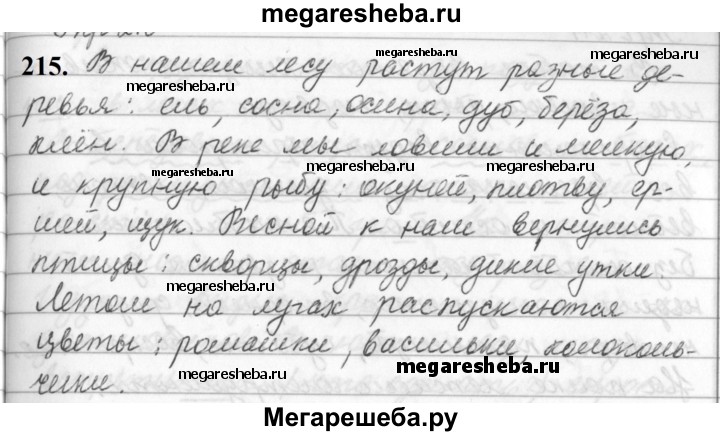 megaresheba.ru
215. В нашем лесу растут разные де-
megaresheba.ru
megaresheba.ru
megaresheba.ru
ревья: ель, сосна, осина, дуб, берёза,
клён. В реке мы ловили и мелкую,
megaresheba.ru
megaresheba.ru
и крупную рыбу: окуней, плотву, ер-
шей, щук. Весной к нам вернулись
птицы: скворцы, дрозды, дикие утки.
megaresheba.ru
megaresheba.ru
Летом на лугах распускаются
цветы: ромашки, васильки, колоколь-
чики.
megaresheba.ru
megaresheba.ru
Мегарешеба.ру